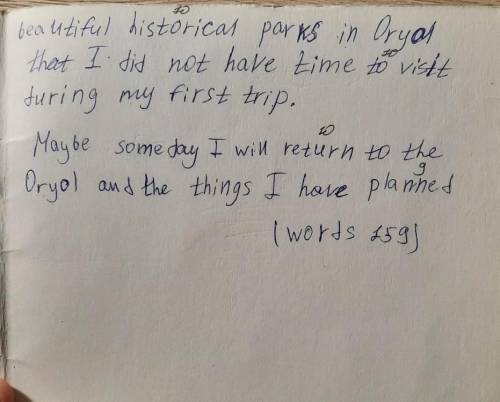 10
beautiful historical parks in Oryol
10
that I did not have time to visit
during my first trip.
10
Maybe someday I will return to the
9
Oryol and the things I have planned
(words 159)